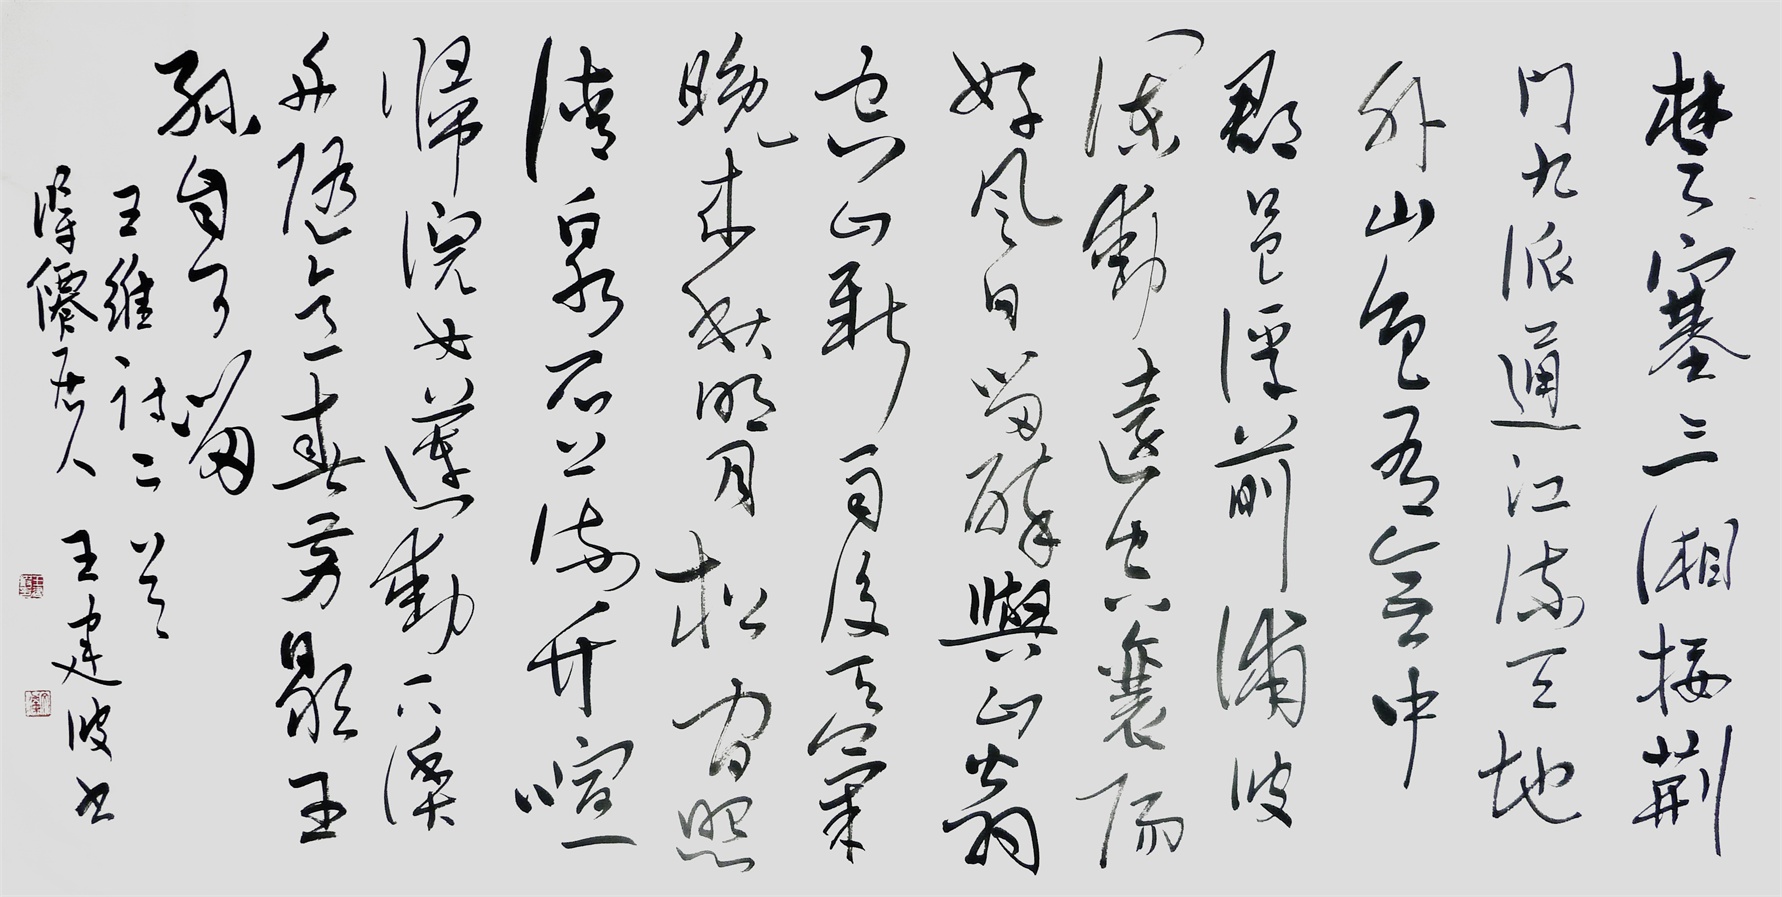 楚塞三湘接荆
门九派通江流天地
外山色有无中
郡邑浮前浦波
澜动远空襄阳
好风日留醉与山翁
空山新雨后天气
晚来秋明月松间照
清泉石上流竹喧
归浣女莲动下渔
舟随意春芳歇王
孙自可留
王维诗二首
得仙居人 王建波书